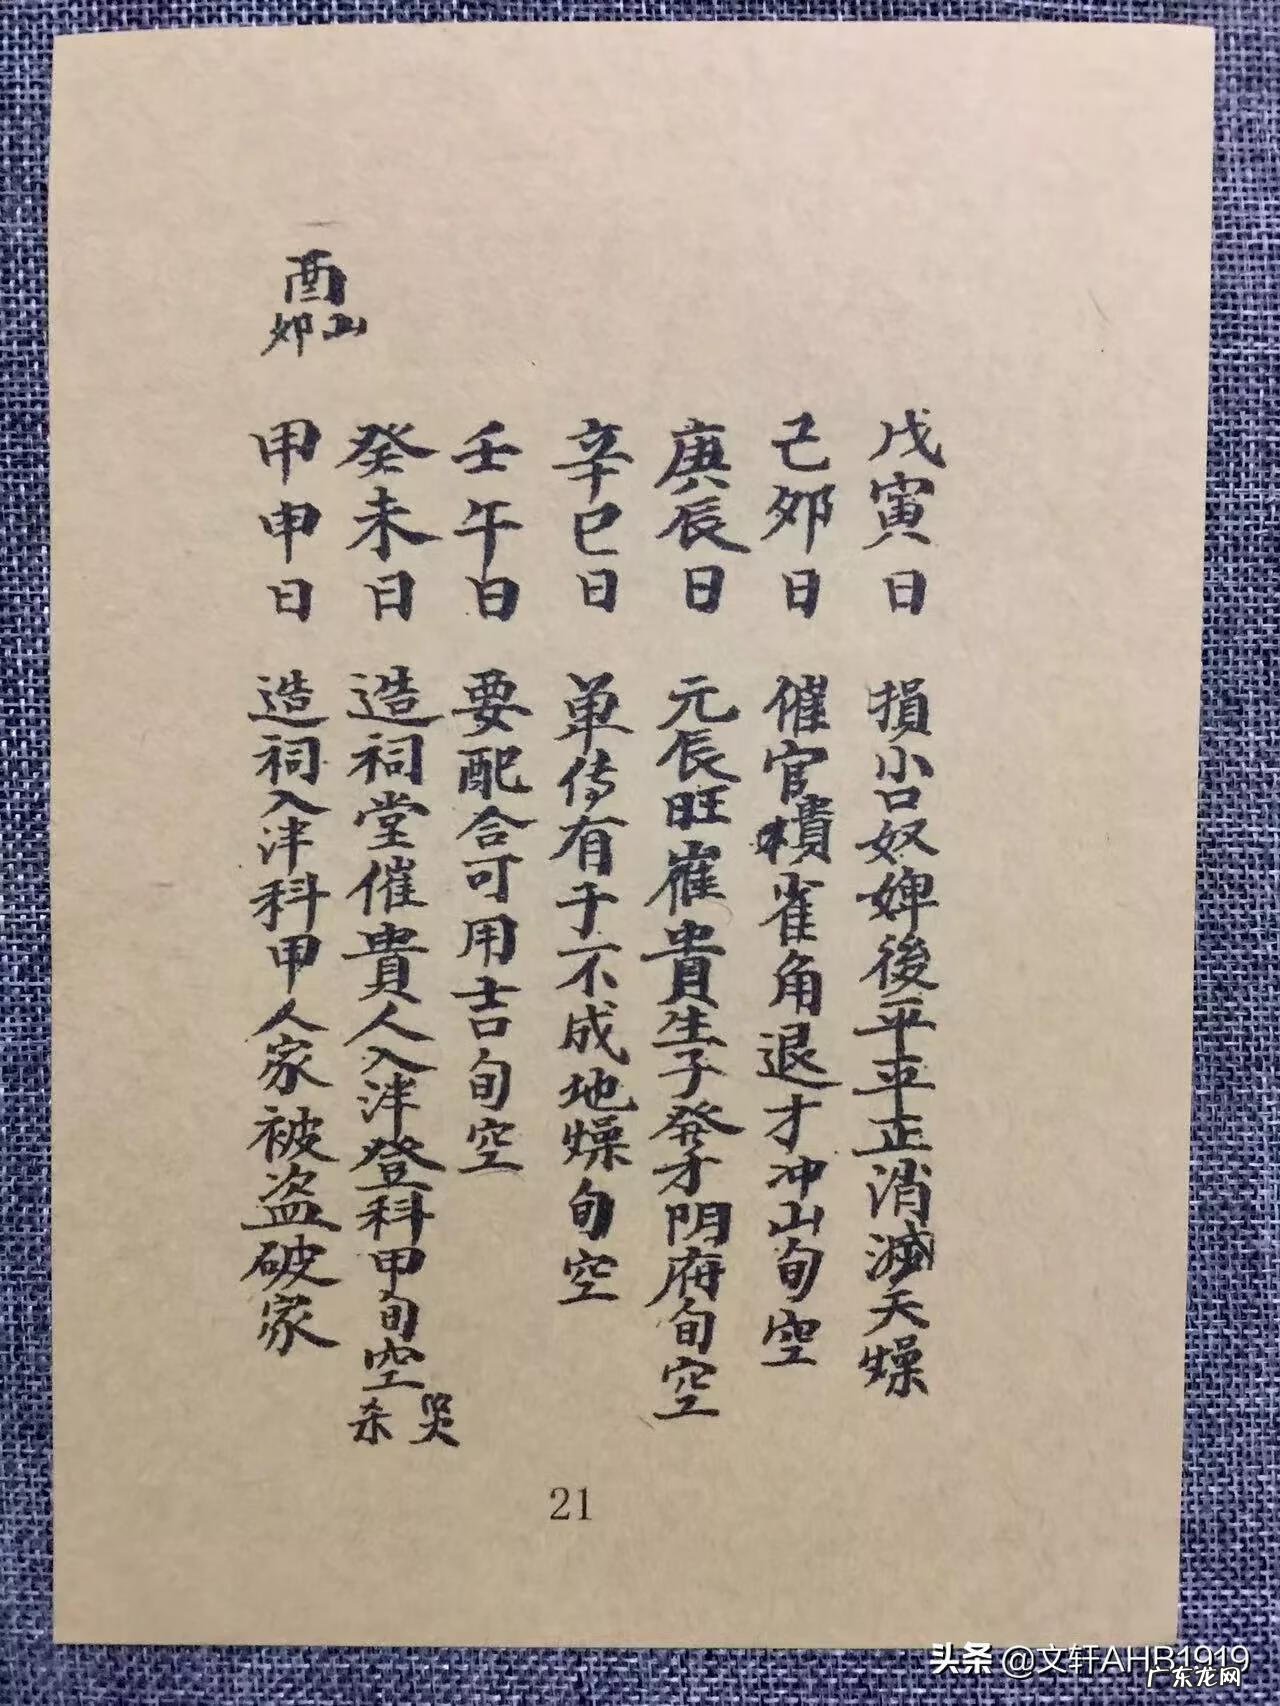 戊寅日 損小口奴婢後平平正消滅天燥
己夘日 催官横雀角退才冲山旬空
庚辰日 元辰旺崔貴生子發才阴府旬空
辛巳日 单传有于不成地燥旬空
壬午日 要配合可用吉旬空
癸未日 造祠堂催貴人入泮登科甲旬空哭杀
甲申日 造祠入泮科甲人家被盗破家
酉山夘
21
头条 @文轩AHB1919
广东龙网